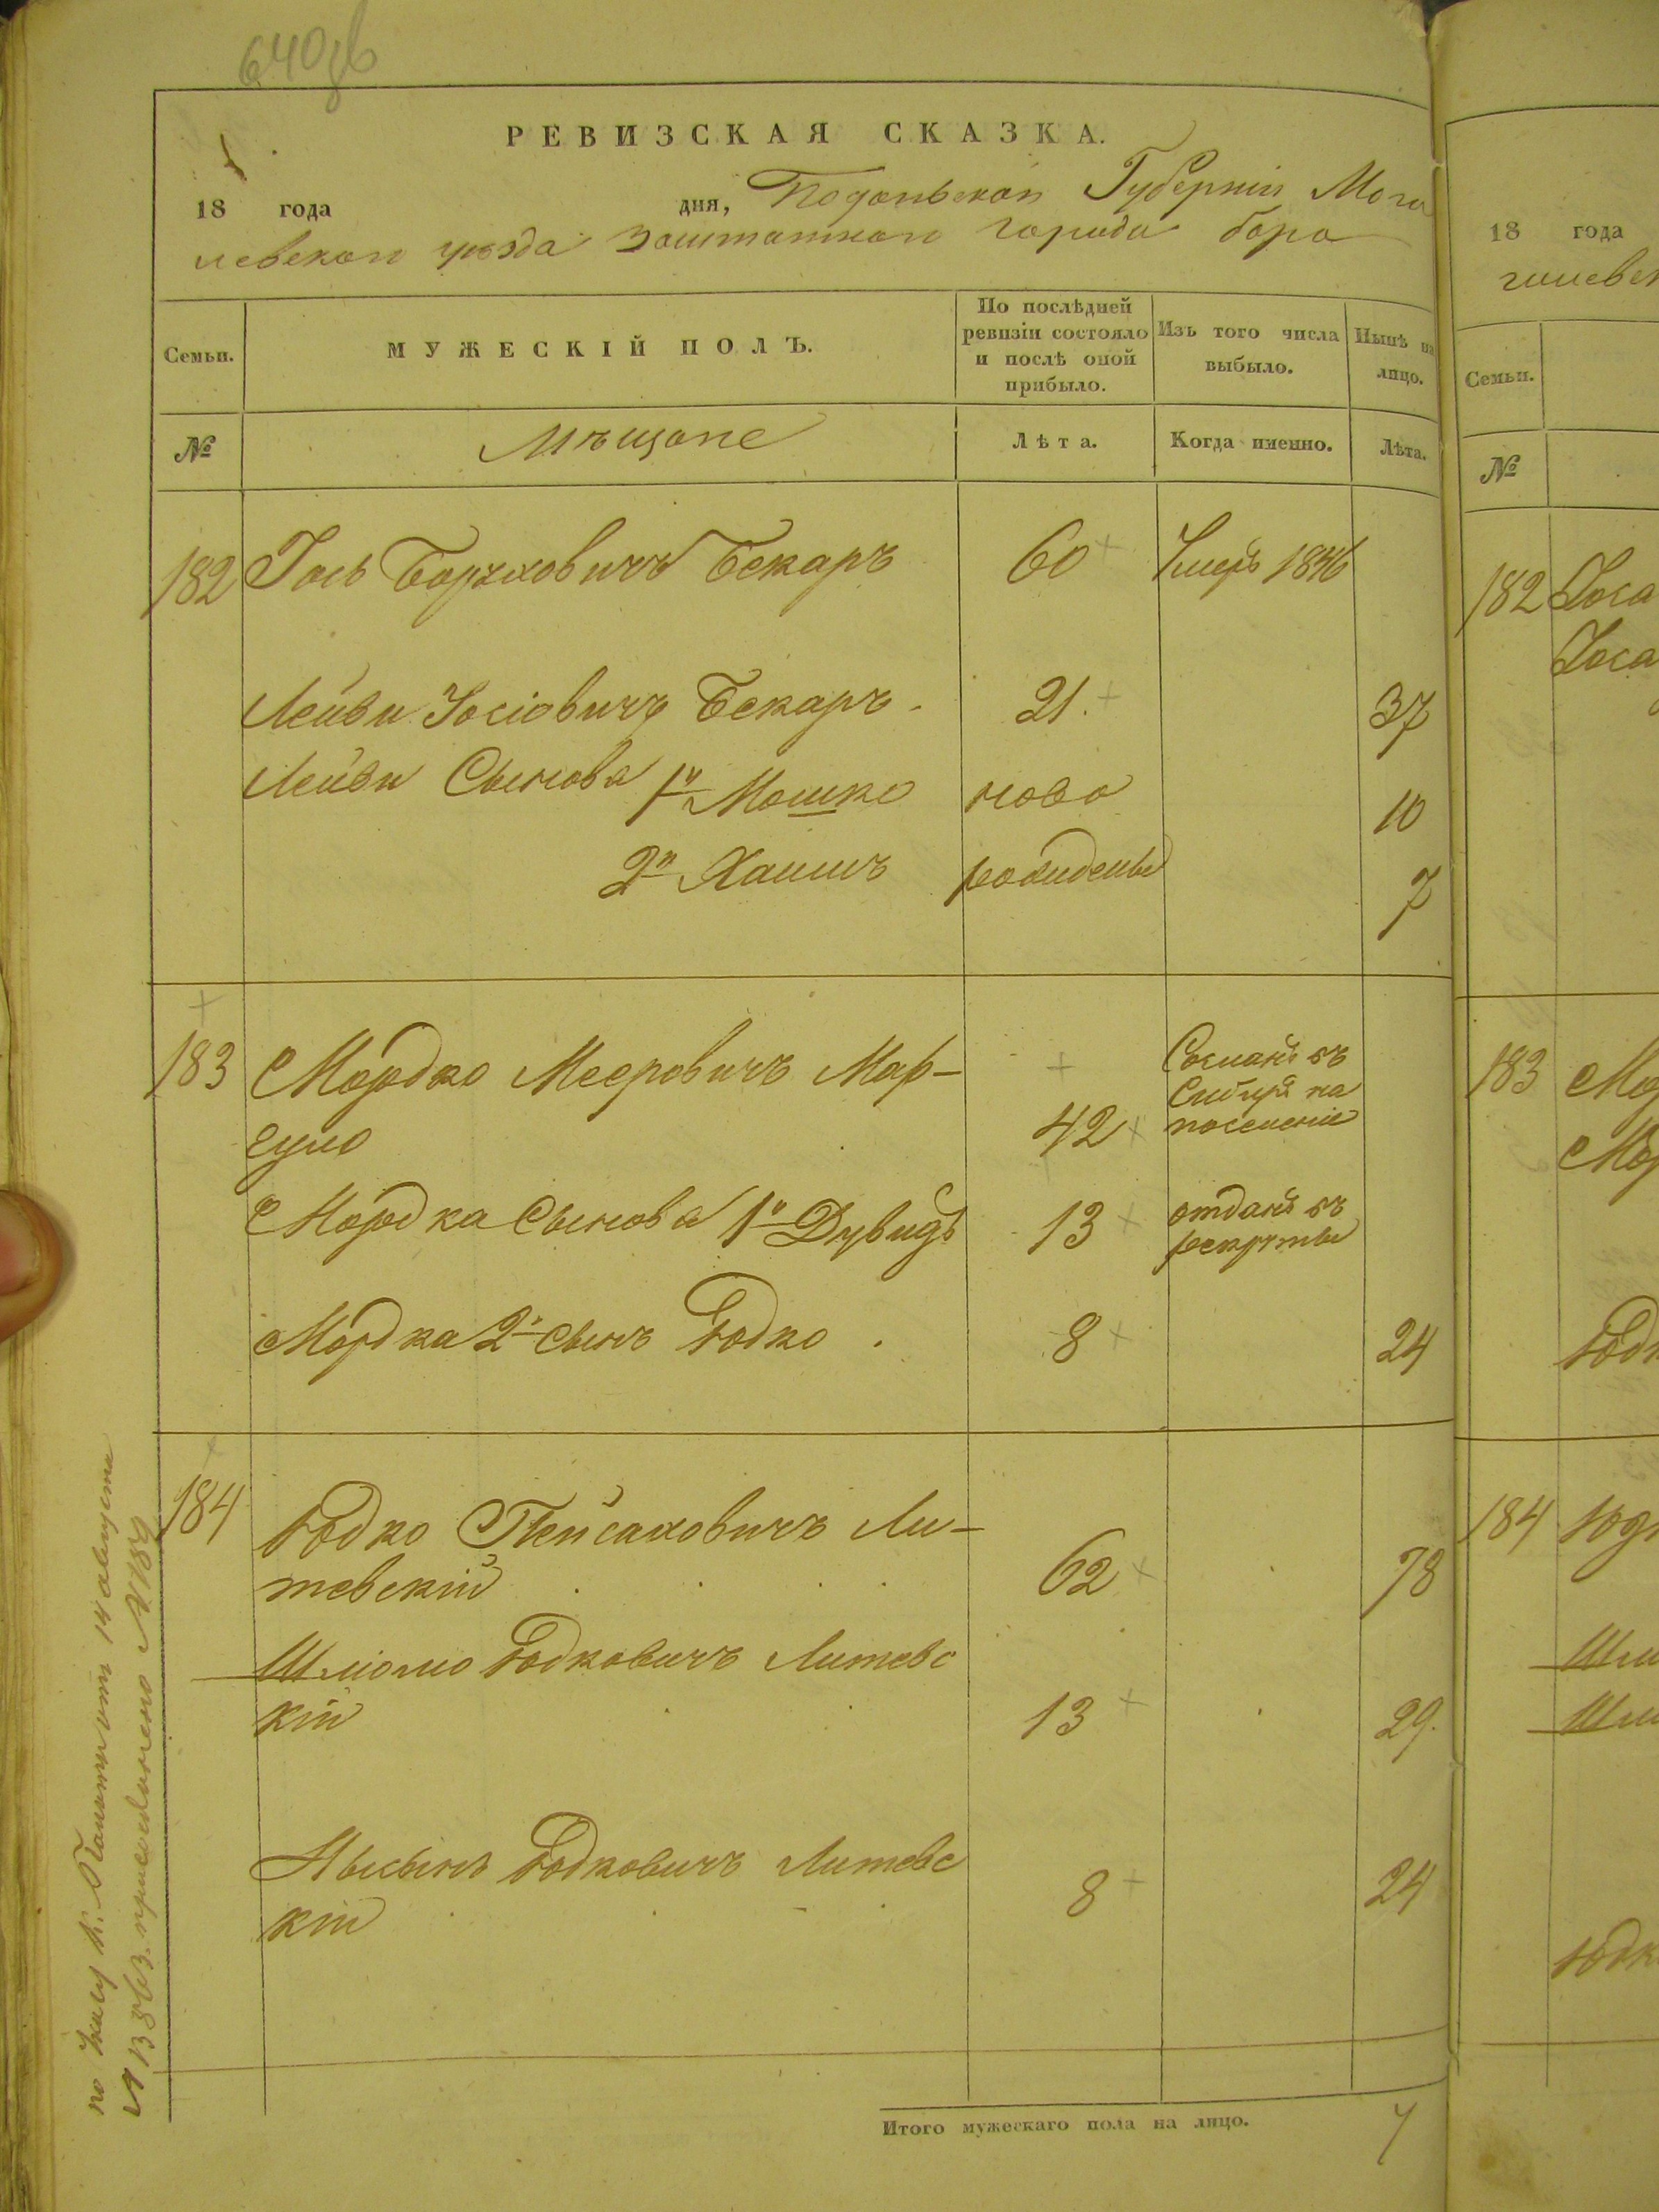 640 об
РЕВИЗСКАЯ СКАЗКА.
18 года дня, Подольской Губерніи Моги
левской уѣзда Заштатнаго города Бара
Семьи.
МУЖЕСКІЙ ПОЛЪ.
По послѣдней ревизіи состояло и послѣ оной прибыло.
Изъ того числа выбыло.
Нынѣ на лицо.
№
Мѣщане
Лѣта.
Когда именно.
Лѣта.
182 Іось Борховичъ Бекаръ 60 Умеръ 1846
Лейви Іосіовичъ Бекаръ. 21. 37
Лейви Сынова 1й Мошко ново 10
2й Хаимъ рожденые 7
183 Мордко Мееровичъ Мар-
гуло 42 Сосланъ въ
Сибирь на
поселеніе
Мордка Сынова 1й Дувидъ 13 отданъ въ
рекруты
Мордка 2й сынъ Юдко . 8 24
184 Юдко Пейсаховичъ Ли-
тевскій 62 78
Шліомо Юдковичъ Литевс
кій 13 29.
Нысынъ Юдковичъ Литевс
кій 8 24
Итого мужескаго пола на лицо. 7
по Указу К. Палаты отъ 14 августа
18 года
гилевск
Семьи.
№
182 Іоса
Іоса
183 Мор
Мор
Юдк
184 Юдк
Шлі
Шлі
Юдк